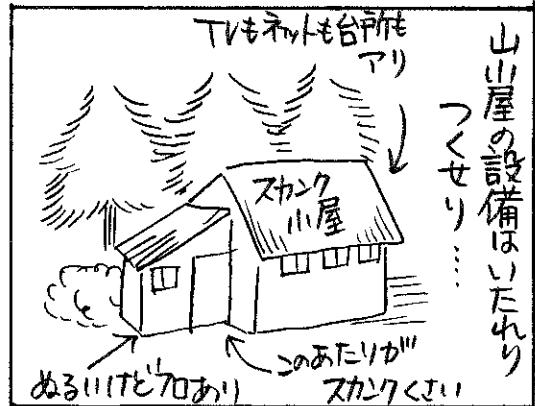 山小屋の設備はいたれり
つくせり……
TVもネットも台所も
アリ
スカンク
小屋
このあたりが
スカンクくさい
ぬるいけどフロあり